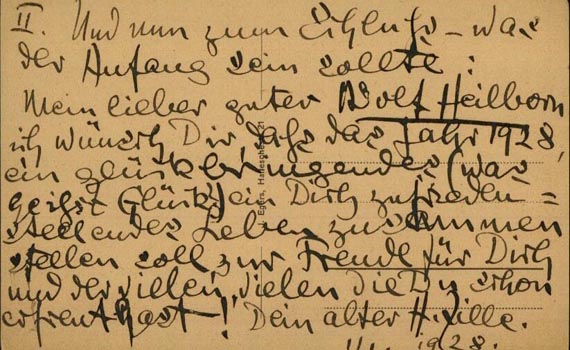 II. Und nun zum Schluss – was
der Anfang sein sollte:
Mein lieber guter Adolf Heilborn
ich wünsch Dir, dass das Jahr 1928,
ein glückbringender (was
heißt Glück) ein Dich zufrieden=
stellender Leben zusammen
stellen soll zur Freude für Dich
und der vielen, vielen die Du schon
erfreut hast! Dein alter H. Zille.
1928.